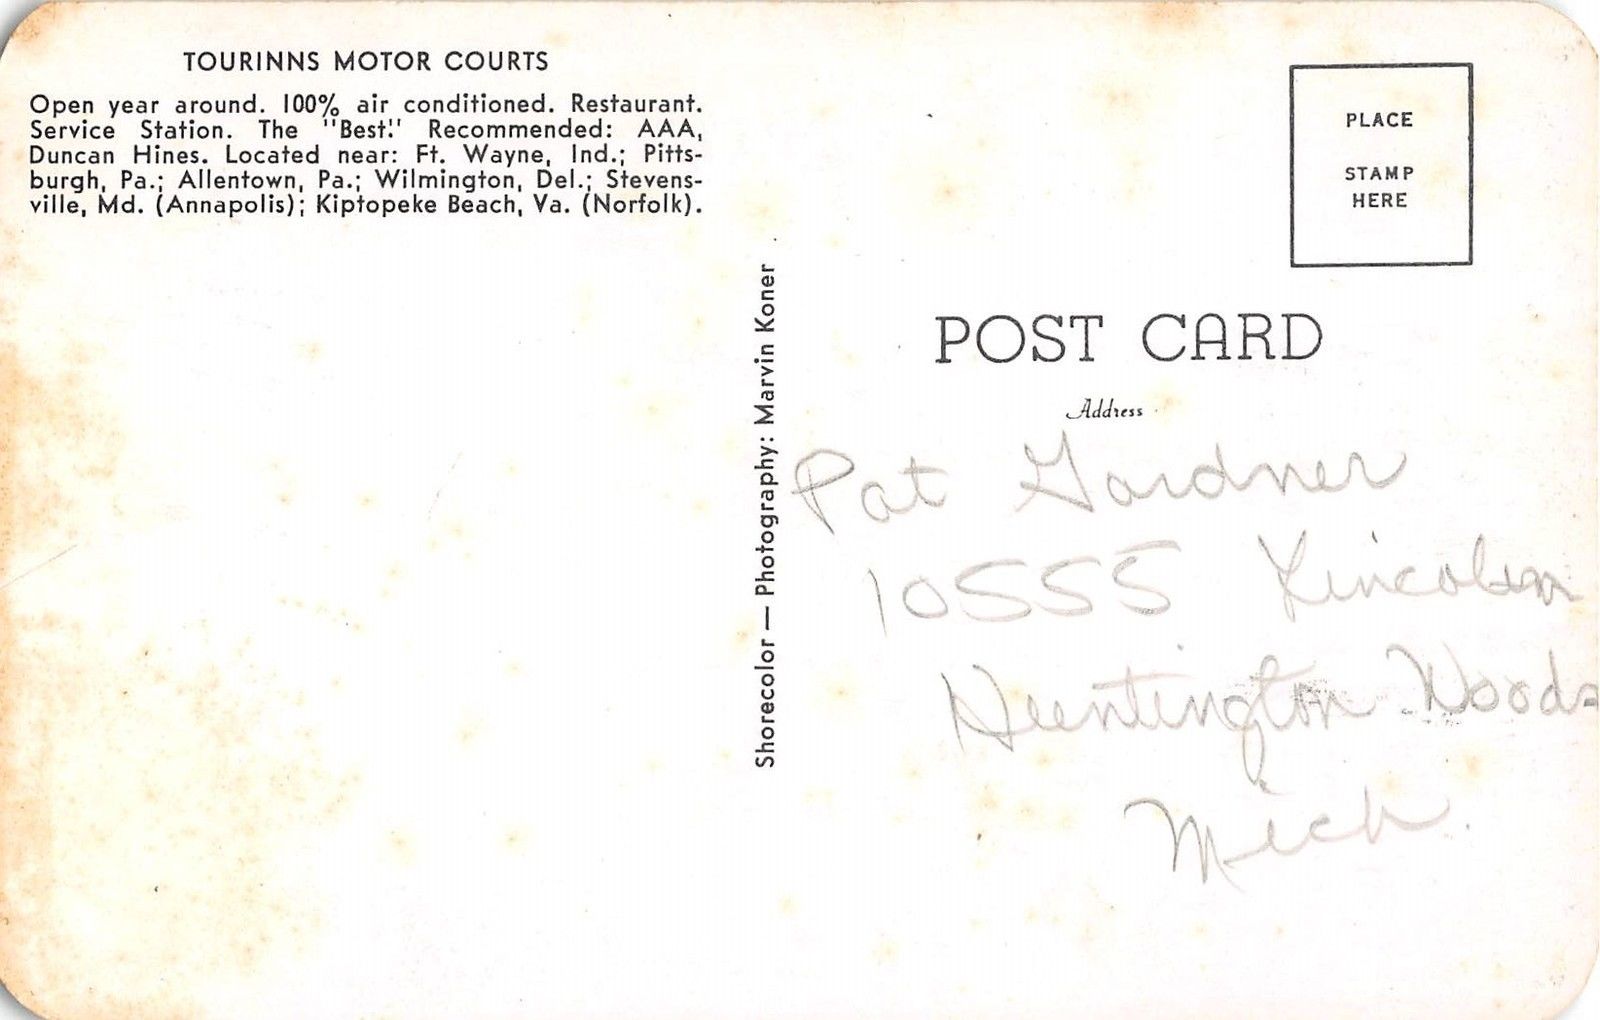 TOURINNS MOTOR COURTS
Open year around. 100% air conditioned. Restaurant.
Service Station. The "Best!" Recommended: AAA,
Duncan Hines. Located near: Ft. Wayne, Ind.; Pitts-
burgh, Pa.; Allentown, Pa.; Wilmington, Del.; Stevens-
ville, Md. (Annapolis); Kiptopeke Beach, Va. (Norfolk).
Shorecolor — Photography: Marvin Koner
PLACE
STAMP
HERE
POST CARD
Address
Pat Gardner
10555 Lincoln
Huntington Woods
Mich.